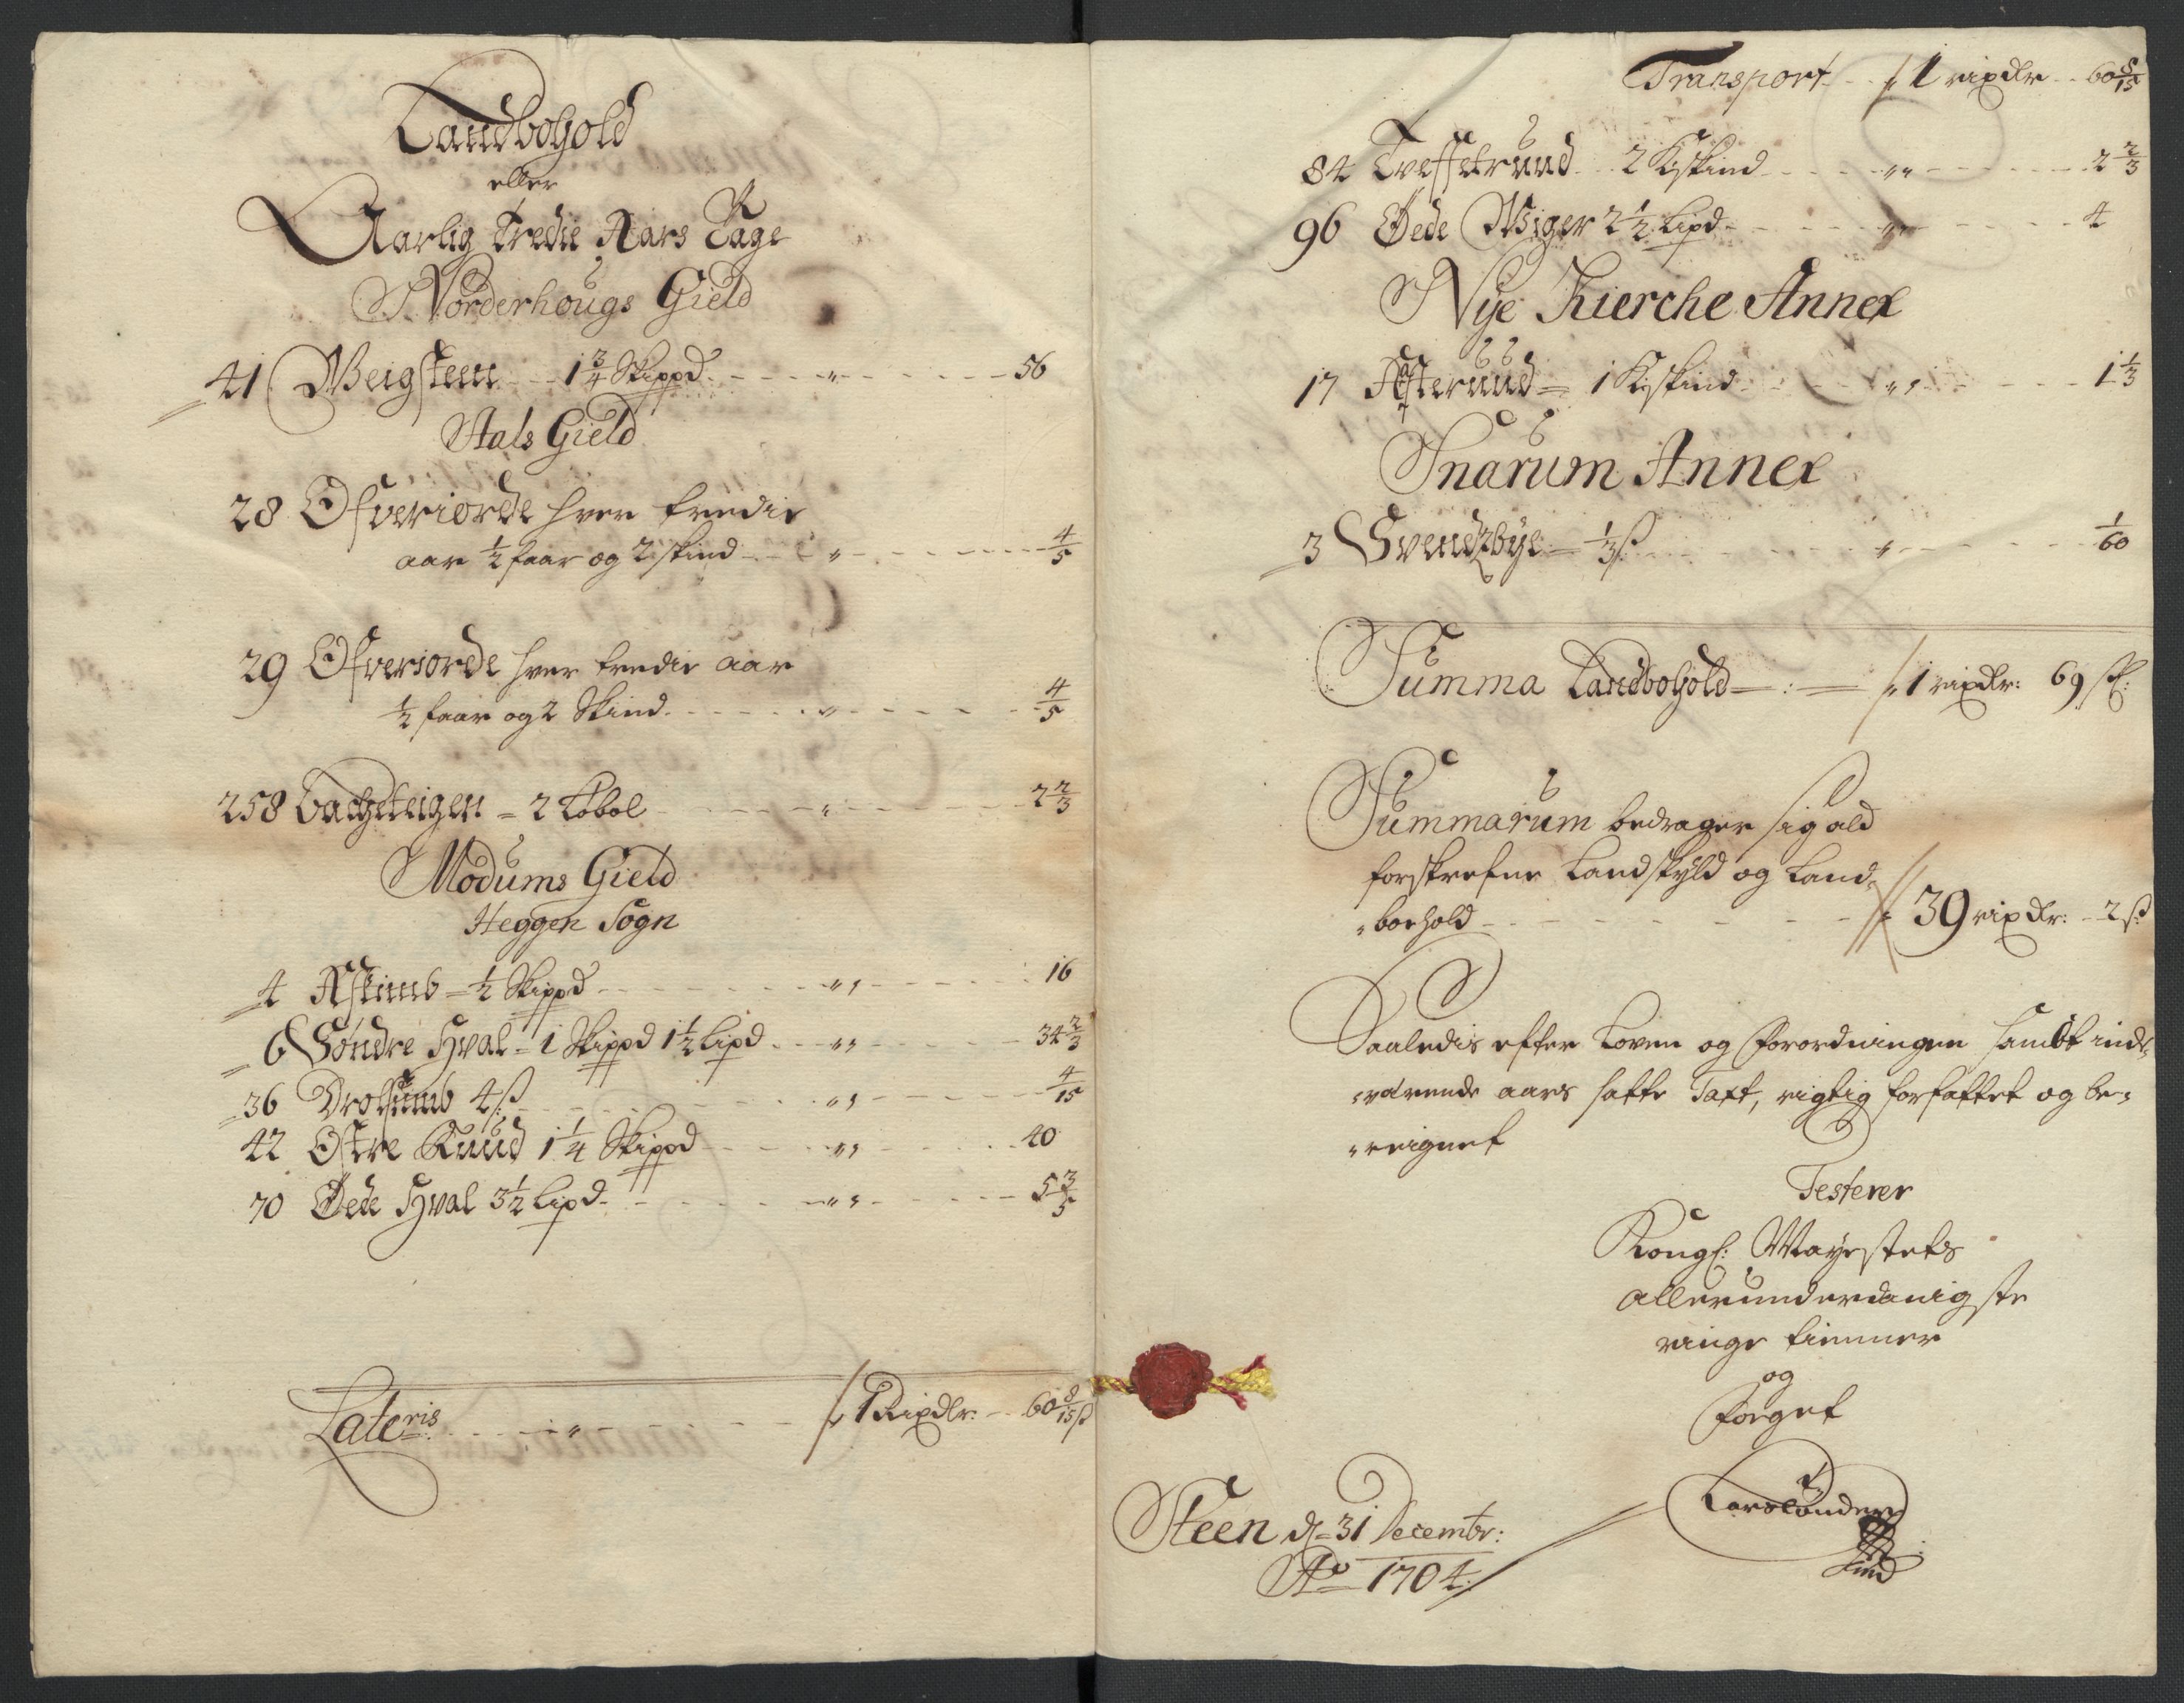 Landbohold
eller
Aarlig tredie Aars Tage
Norderhougs Gield
41 Weigsteen 1 3/4 Skippd " 56
Aals Gield
28 Ofveriorde hver tredie
aar 1/2 faar og 2 skind " 4/5
29 Ofveriorde hver tredie aar
1/2 faar og 2 Skind " 4/5
258 2 Lobol " 2 2/3
Modums Gield
Heggen Sogn
4 Askimb = 1/2 Skippd " 16
6 Søndre Hval = 1 Skippd 1 1/2 Lipd " 34 2/3
36 Drolsumb 4 ß " 4/15
42 Østre Ruud 1 1/4 Skippd " 40
70 Øede Hval 3 1/2 Lipd " 5 3/5
Lateris " 1 Rixdlr: 60 8/15 ß
Transport 1 rixdlr 60 8/15
84 2 Kskind " 2 2/3
96 Øede Wiger 2 1/2 Lipd " 4
Nye Kierche Annex
17 Aasteruud = 1 Kskind " 1 1/3
Snarum Annex
3 Svendsbye = 1/3 ß " 1/60
Summa Landbohold = : = 1 rixdlr: 69 ß:
Summarum bedrager sig ald
forskrefne Landskyld og Land-
-boehold 39 rixdlr: 2 ß
Saaledis efter Loven og Forordningen sambt inde-
-værende aars satte Taxt, rigtig forfattet og be-
-reignet
Testerer
Kongl: Mayestets
allerunderdanigste
ringe tienner
og
Foeget
Steen d= 31 Decembr:
Ao 1704: